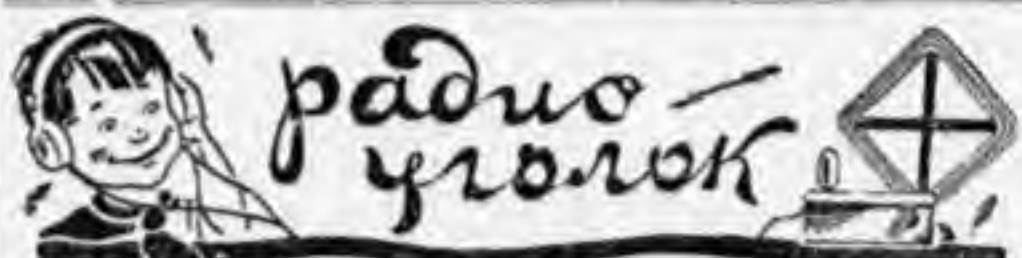 радио—
уголок